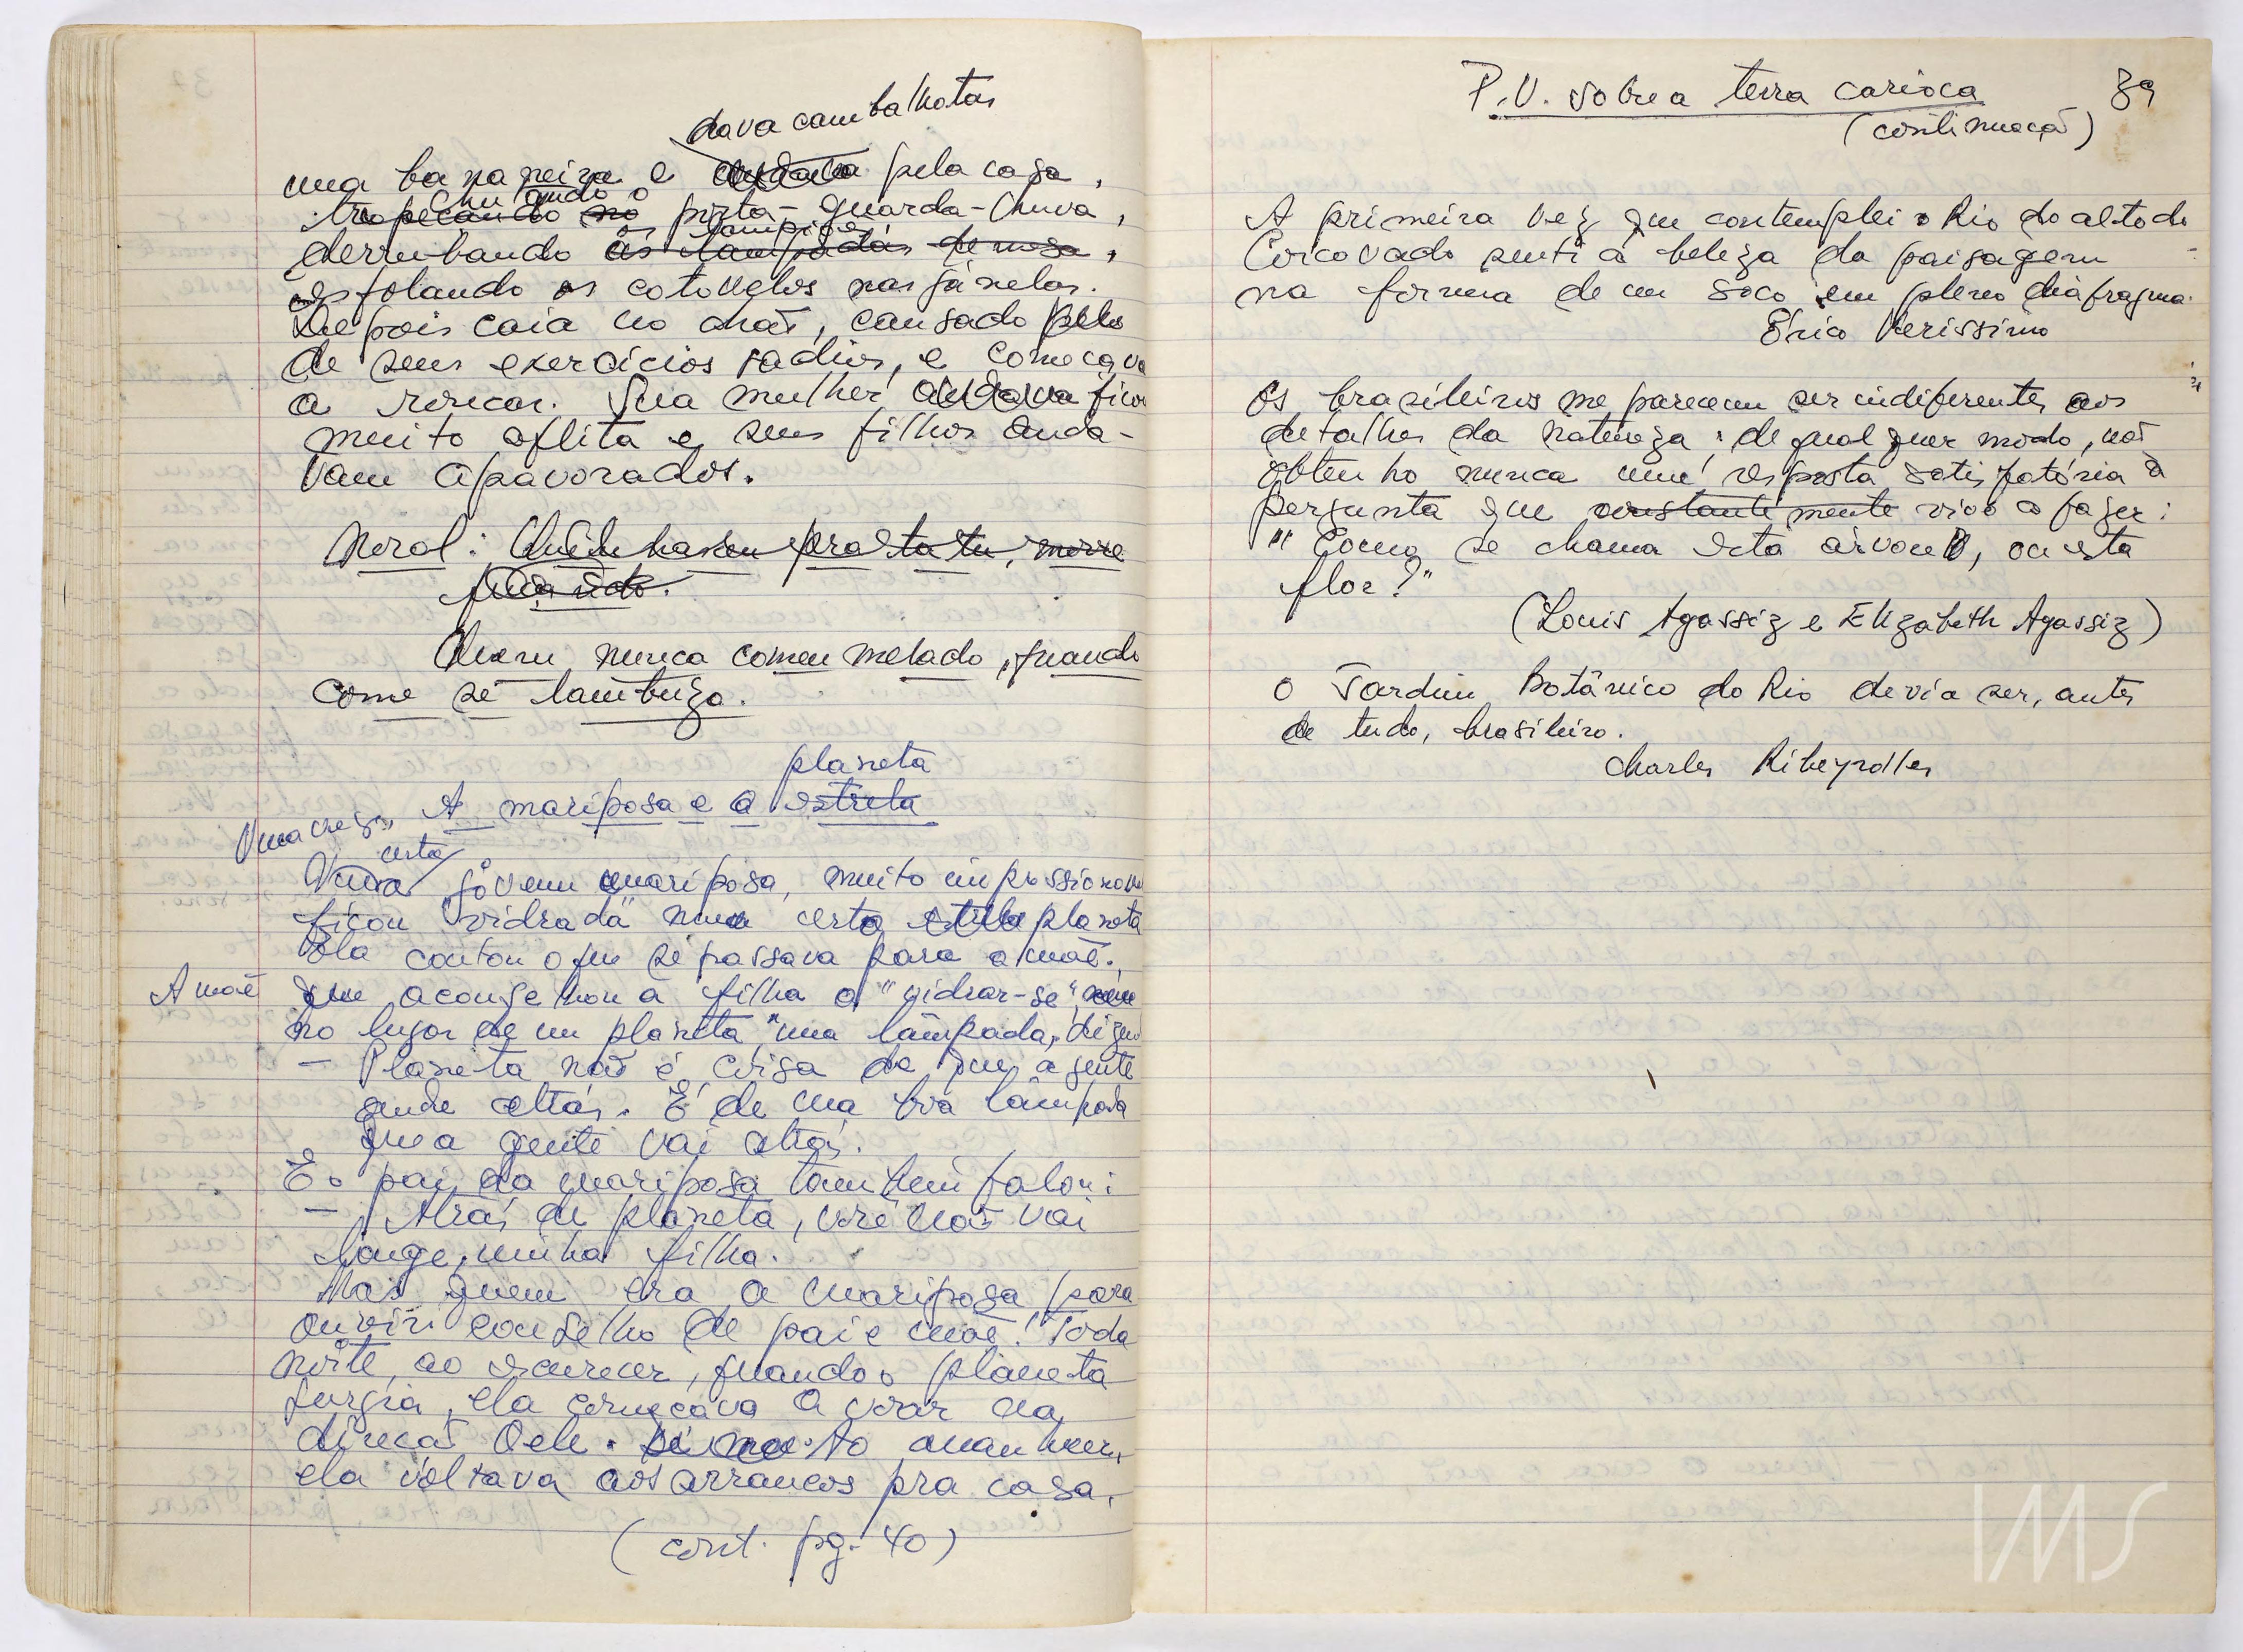 dava cambalhotas
uma bananeira e andava pela casa,
chutando o
tropeçando no porta-guarda-chuva,
os lampiões
derrubando as lampadas de mesa,
esfolando os cotovelos nas janelas.
Depois caía no chão, cansado pelo
de seus exercícios sadios, e começava
a roncar. Sua mulher andava ficou
muito aflita e seus filhos anda-
vam apavorados.
Moral:
Quem nunca comeu melado, quando
come se lambuza.
planeta
A mariposa e a estrela
Uma vez,
certa
Uma jovem mariposa, muito impressionav
ficou "vidrada" num certo estrela planeta
Ela contou o que se passava para a mãe.
A mãe que aconselhou a filha a "vidrar-se", num
no lugar de um planeta, uma lâmpada, dizen
— Planeta não é coisa de que a gente
ande atrás. É de uma boa lâmpada
que a gente vai atrás.
E o pai da mariposa também falou:
— Atrás de planeta, você não vai
longe, minha filha.
Mas quem era a mariposa para
ouvir conselho de pai e mãe! Toda
noite, ao escurecer, quando o planeta
surgia, ela começava a voar na
direção dele. Ao amanhecer,
ela voltava aos arrancos pra casa,
(cont. pg. 40)
P.V. sobre a terra carioca
39
(continuação)
A primeira vez que contemplei o Rio do alto do
Corcovado senti a beleza da paisagem
na forma de um soco em pleno diafragma.
Érico Verissimo
Os brasileiros me parecem ser indiferentes aos
detalhes da natureza; de qualquer modo, não
obtenho nunca uma resposta satisfatória à
pergunta que constantemente vivo a fazer:
"Como se chama esta árvore, ou esta
flor?"
(Louis Agassiz e Elizabeth Agassiz)
O Jardim Botânico do Rio devia ser, antes
de tudo, brasileiro.
Charles Ribeyrolles
IMS